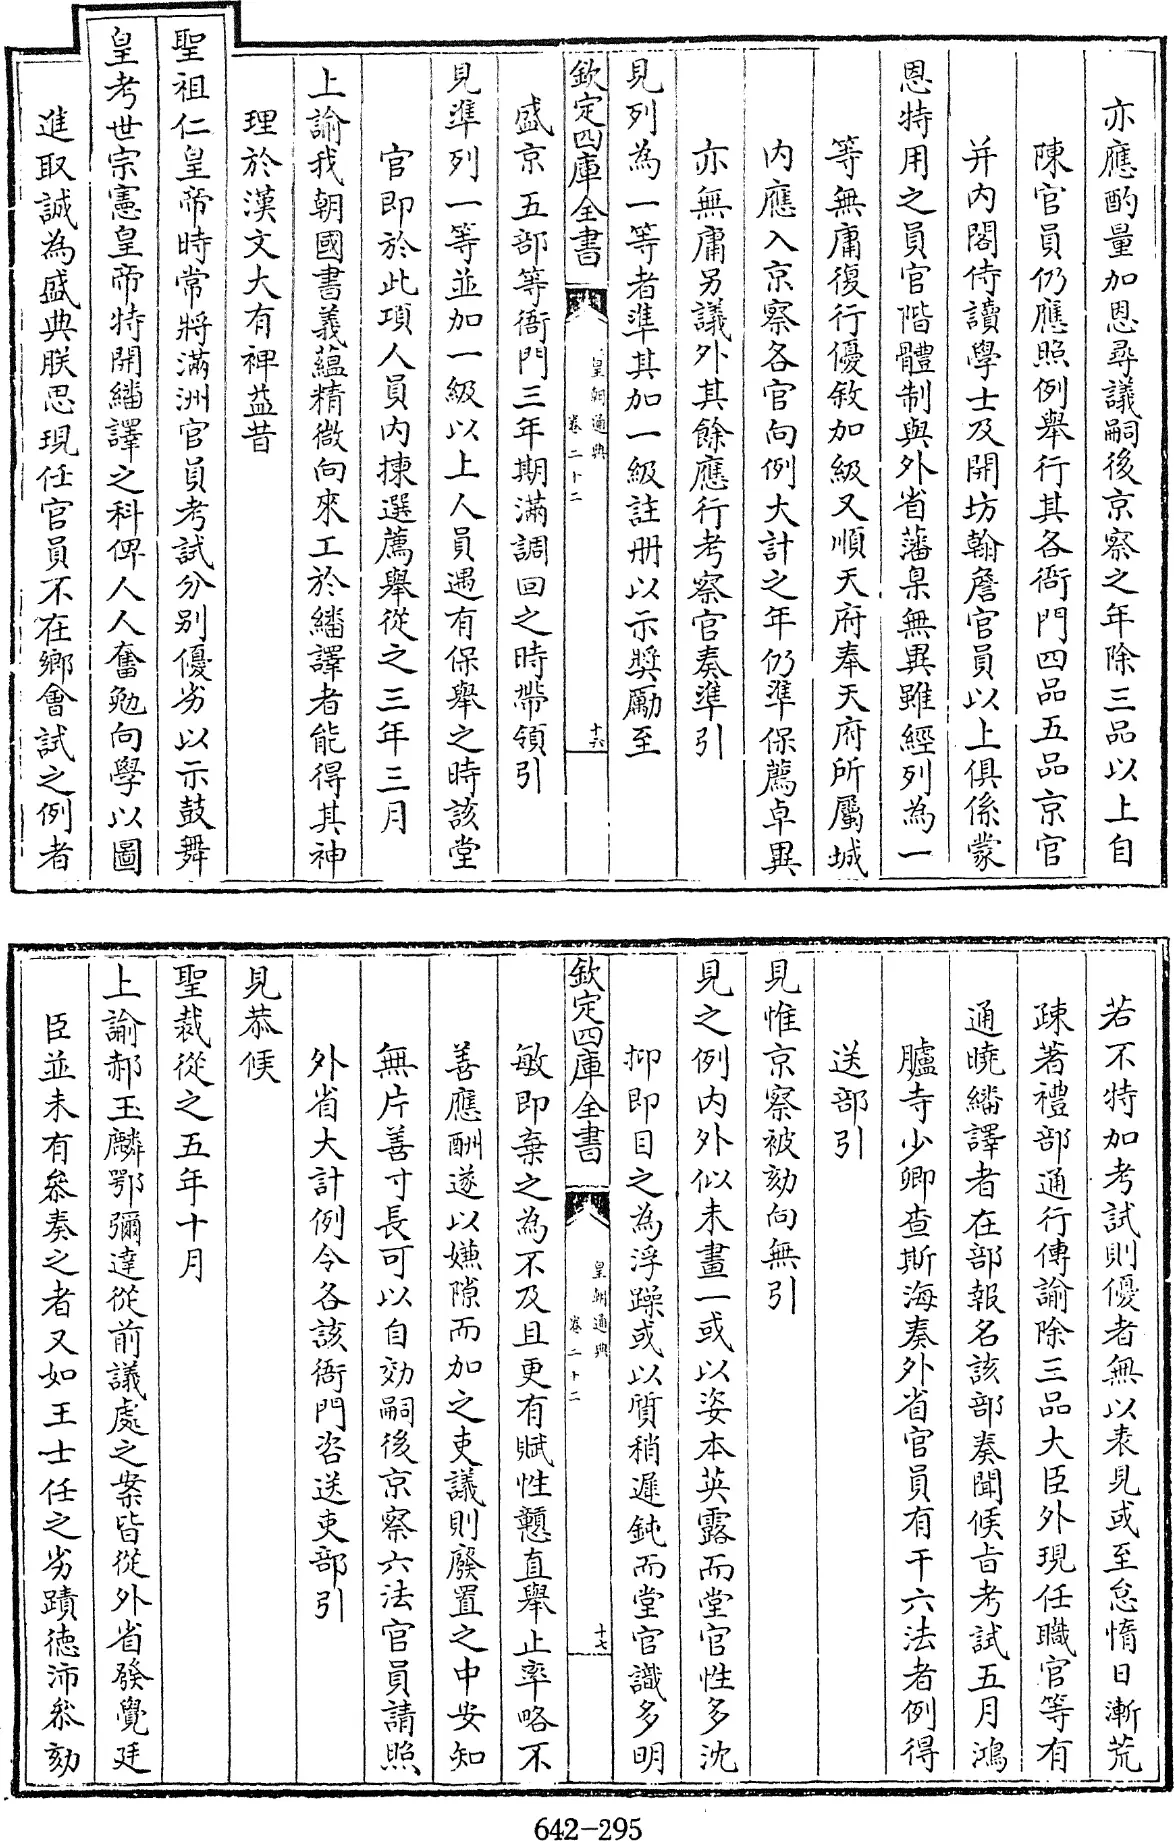 亦應酌量加恩尋議嗣後京察之年除三品以上自
陳官員仍應照例舉行其各衙門四品五品京官
并内閣侍讀學士及開坊翰詹官員以上俱係蒙
恩特用之員官階體制與外省藩臬無異雖經列為一
等無庸復行優敘加級又順天府奉天府所屬城
内應入京察各官向例大計之年仍準保薦卓異
亦無庸另議外其餘應行考察官奏準引
見列為一等者準其加一級註册以示獎勵至
欽定四庫全書
皇朝通典
卷二十二
十六
盛京五部等衙門三年期滿調回之時帶領引
見準列一等並加一級以上人員遇有保舉之時該堂
官即於此項人員内揀選薦舉從之三年三月
上諭我朝國書義蘊精微向來工於繙譯者能得其神
理於漢文大有裨益昔
聖祖仁皇帝時常將滿洲官員考試分别優劣以示鼓舞
皇考世宗憲皇帝特開繙譯之科俾人人奮勉向學以圖
進取誠為盛典朕思現任官員不在鄉會試之例者
若不特加考試則優者無以表見或至怠惰日漸荒
疎著禮部通行傳諭除三品大臣外現任職官等有
通曉繙譯者在部報名該部奏聞候旨考試五月鴻
臚寺少卿查斯海奏外省官員有干六法者例得
送部引
見惟京察被劾向無引
見之例内外似未畫一或以姿本英露而堂官性多沈
抑即目之為浮躁或以質稍遲鈍而堂官識多明
欽定四庫全書
皇朝通典
卷二十二
十七
敏即棄之為不及且更有賦性戇直舉止率略不
善應酬遂以嫌隙而加之吏議則廢置之中安知
無片善寸長可以自効嗣後京察六法官員請照
外省大計例令各該衙門咨送吏部引
見恭候
聖裁從之五年十月
上諭郝玉麟鄂彌達從前議處之案皆從外省發覺廷
臣並未有叅奏之者又如王士任之劣蹟德沛叅劾
642-295